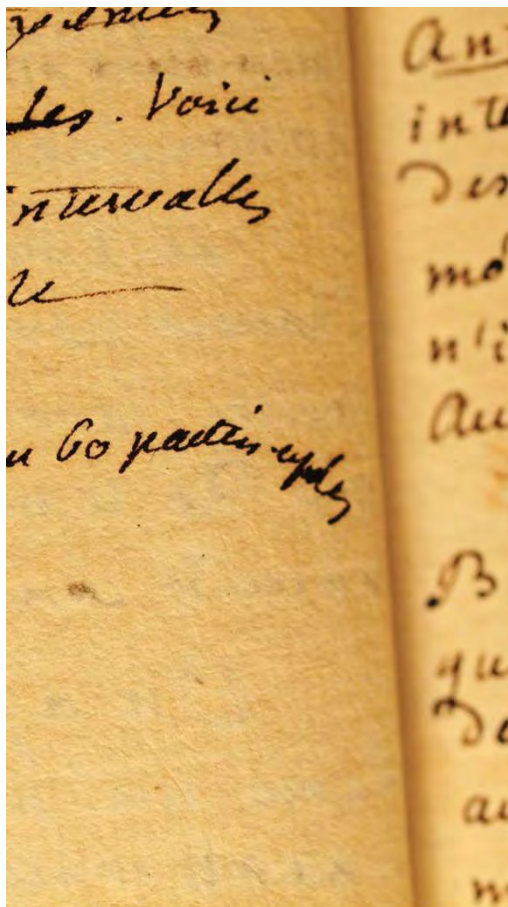 les. Voici
intervalles
re
60 parties
An
inte
Des
mo
n'i
Au
B
qu
De
au
m